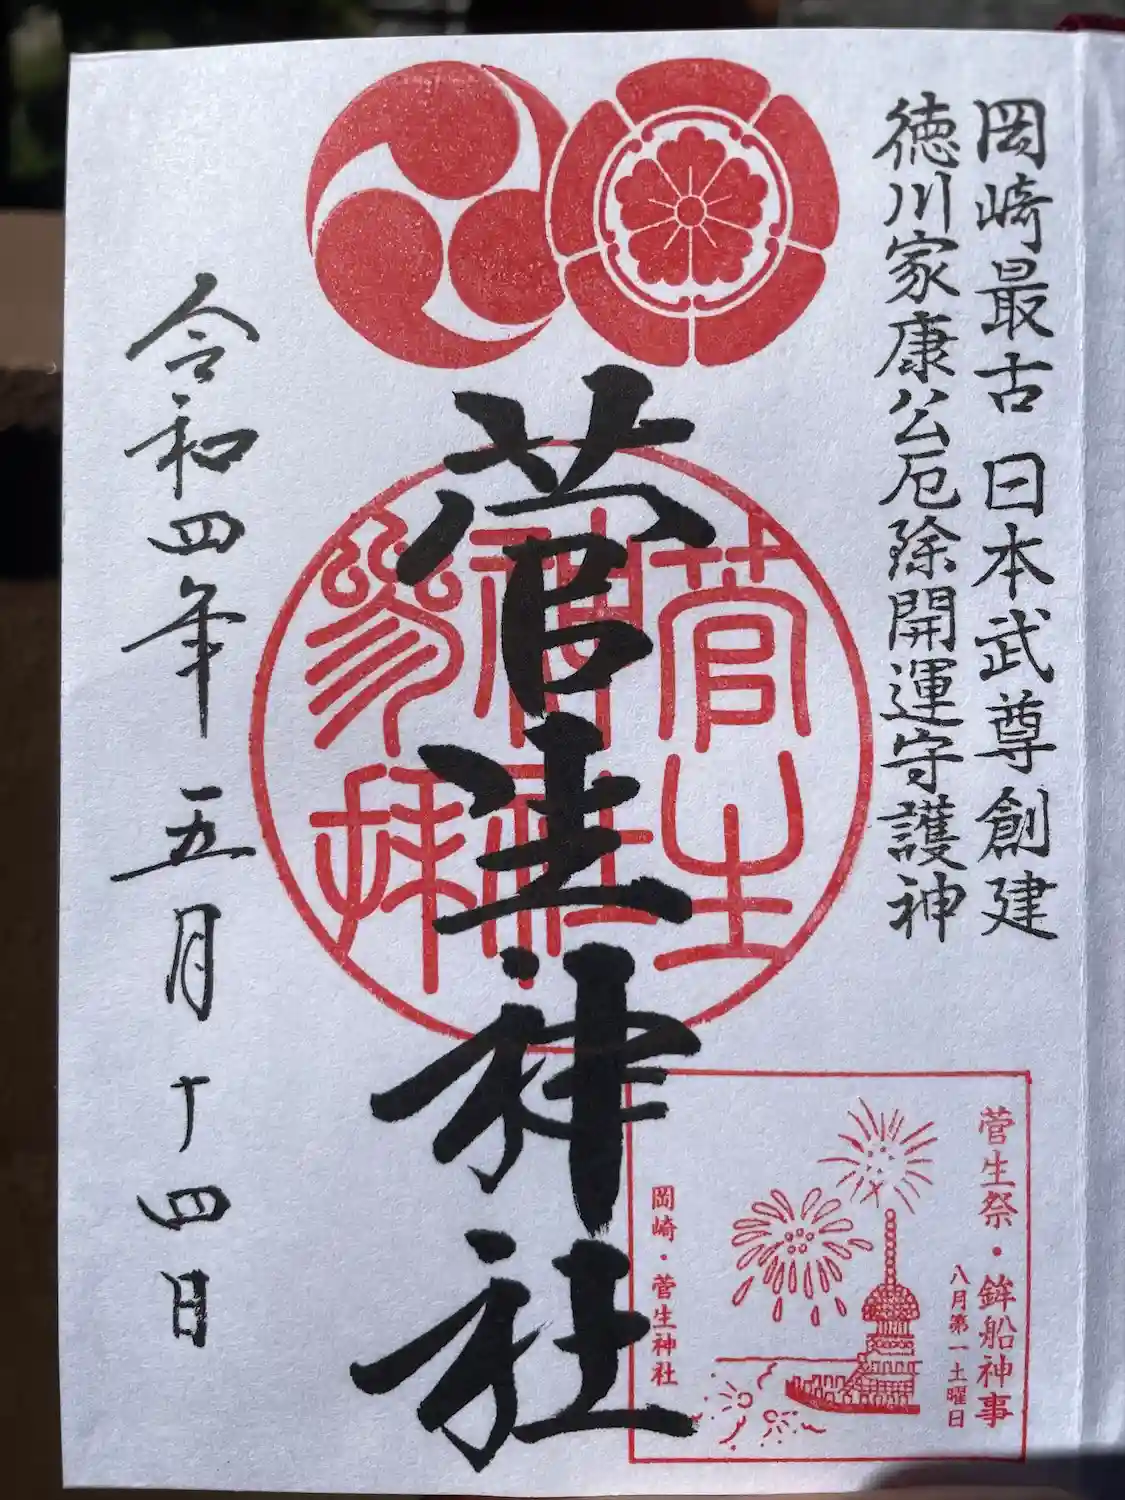 岡崎最古 日本武尊創建
徳川家康公厄除開運守護神
菅生神社
菅生
神社
参拝
菅生祭・鉾船神事
八月第一土曜日
岡崎・菅生神社
令和四年 五月十四日